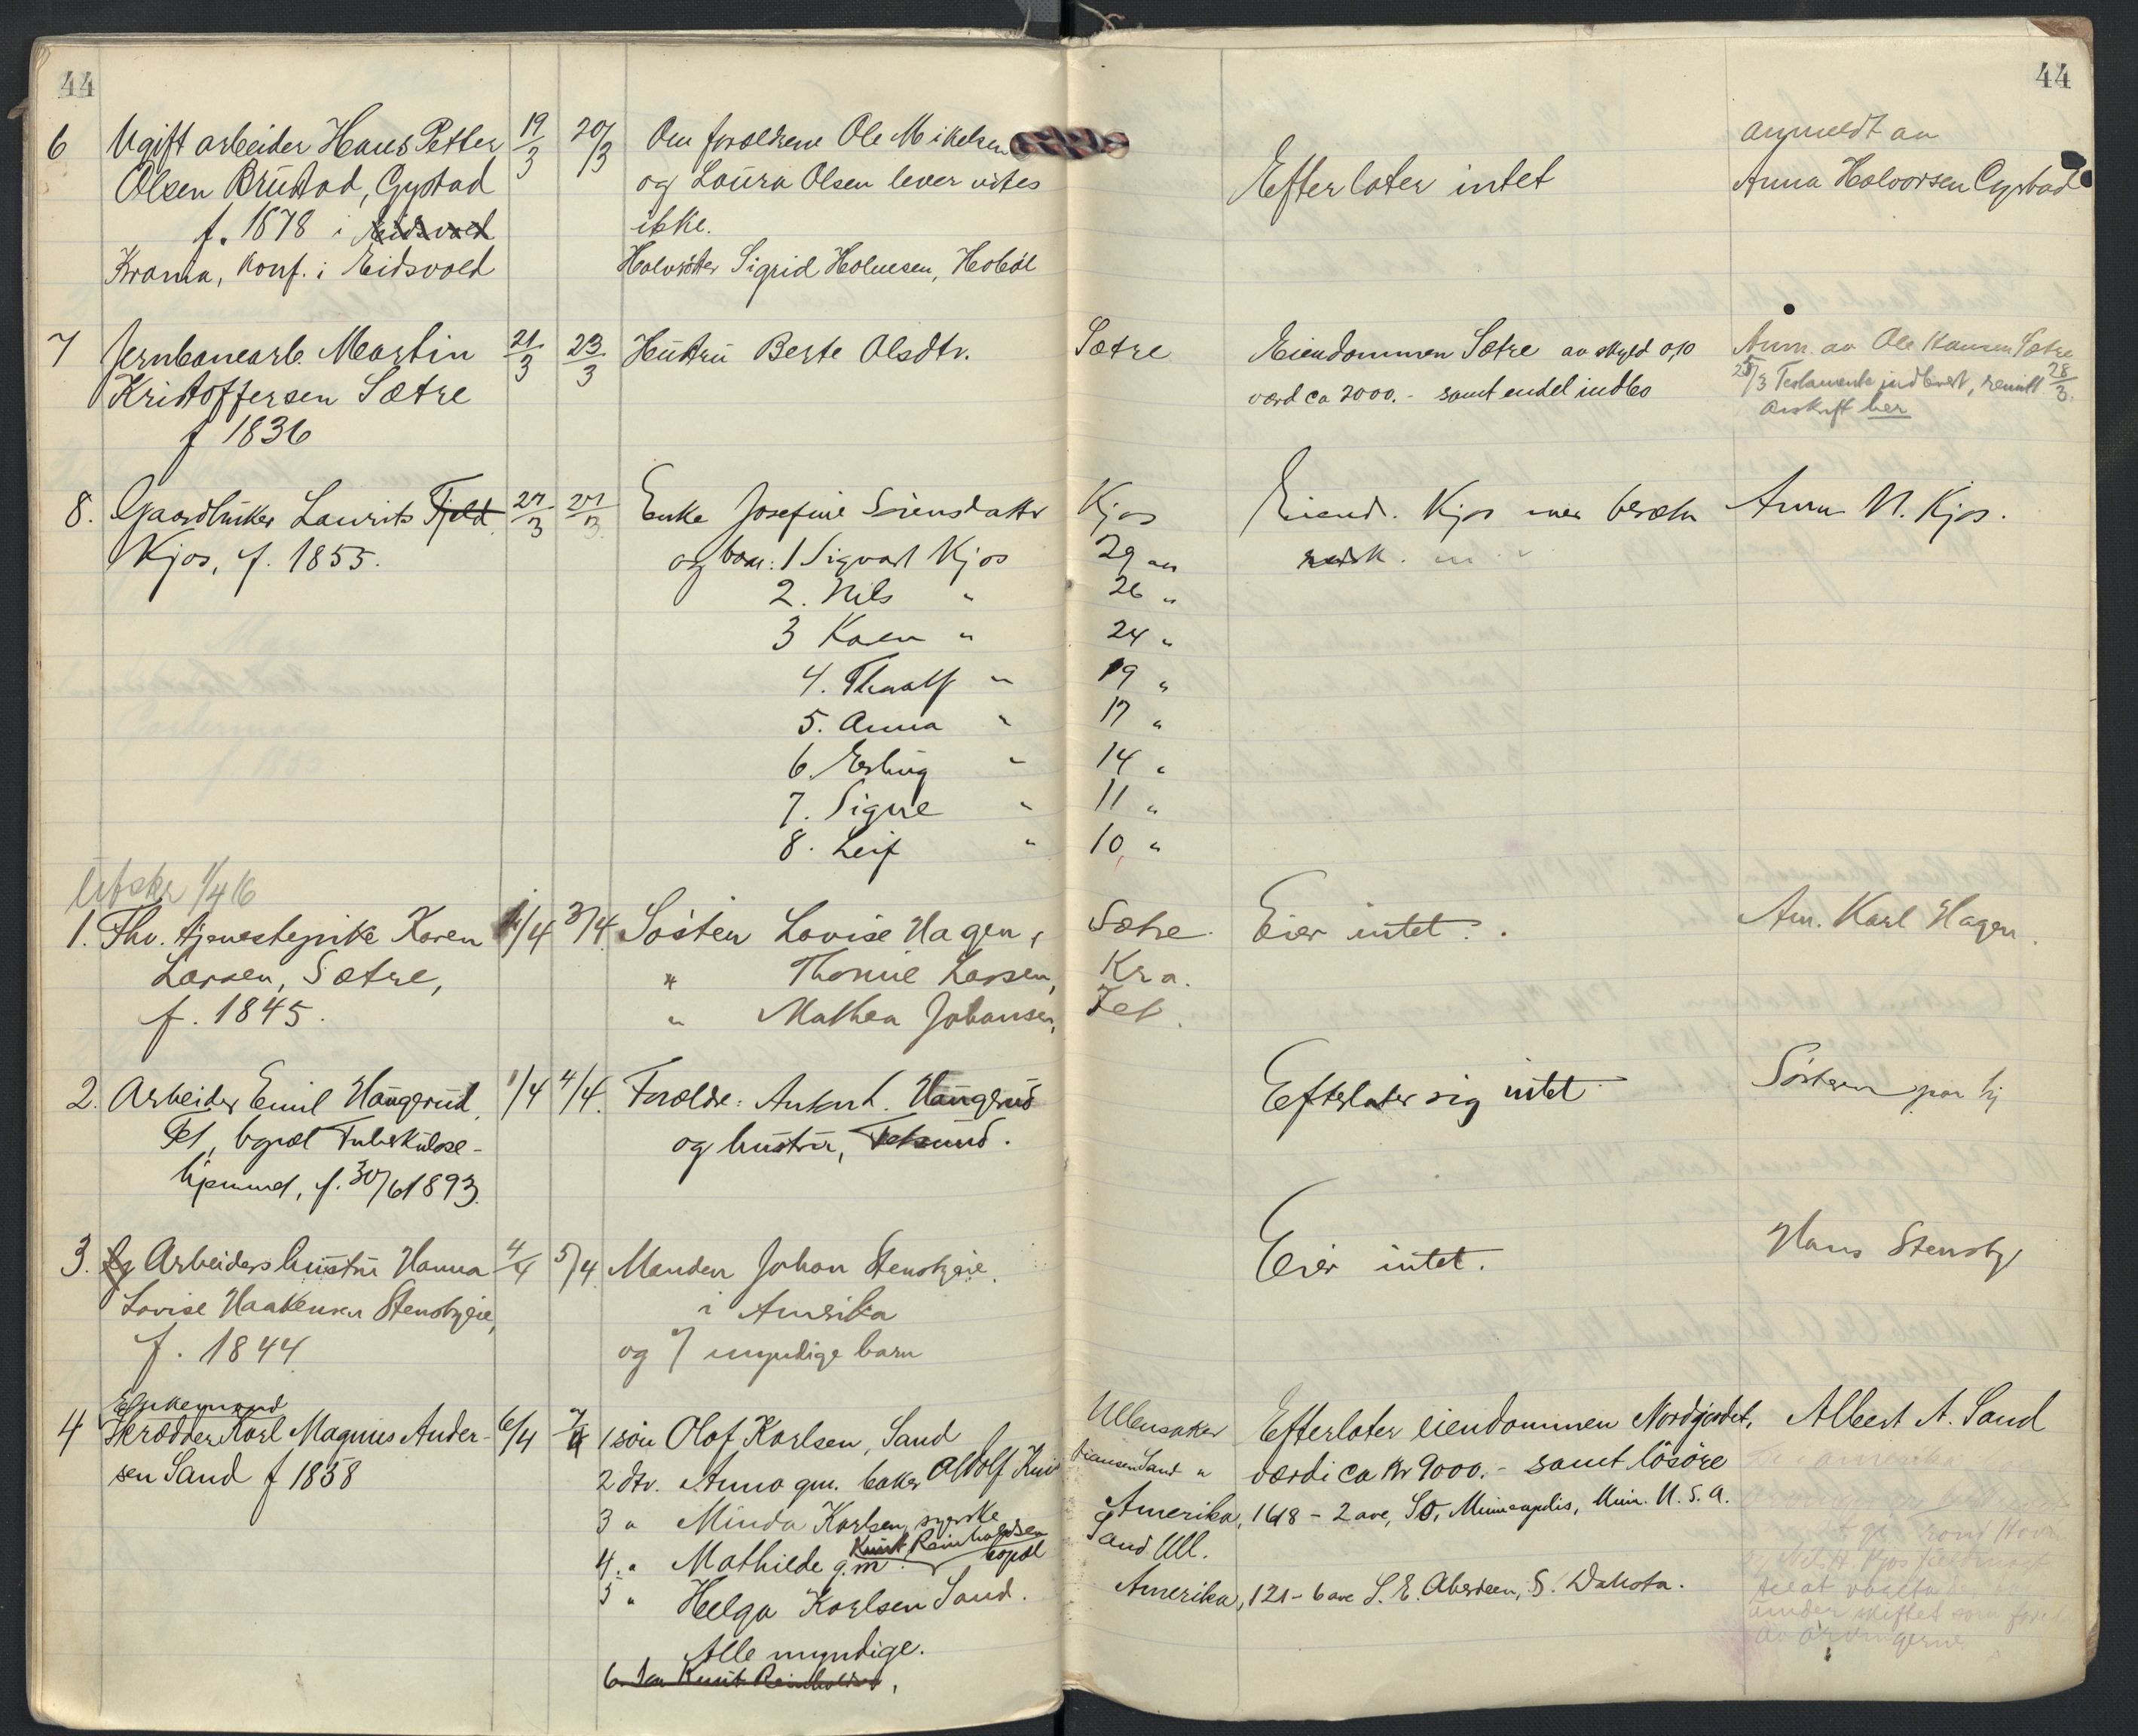 44
44
6 Ugift arbeider Hans Petter 19/3 20/3 Om forældrene Ole Mikelsen anmeldt av
Olsen Brustad, Gystad og Laura Olsen lever vites Efterlater intet Anna Halvorsen Gystad
f. 1878 i Eidsvold ikke.
Krania, konf. i Eidsvold Halvsøster Sigrid Holmesen, Hobøl
7 Jernbanearb. Martin 21/3 23/3 Hustru Berte Olsdtr. Sætre Eiendommen Sætre av skyld 0,10 Anm. av Ole Hansen Sætre
Kristoffersen Sætre værd ca 2000.- samt endel indbo 25/3 Testamente indlevert, 28/3
f 1836 avskrift her
8. Gaardbruker Laurits Fjeld 27/3 27/3 Enke Josefine Sørensdatter Kjos Eiend. Kjos med besætn Anm N. Kjos.
Kjos, f. 1855. og barn: 1 Sigvart Kjos 29 aar redsk.
2. Nils " 26 "
3 Karen " 24 "
4. Thoralf " 19 "
5. Anna " 17 "
6. Erling " 14 "
7. Signe " 11 "
8. Leif " 10 "
Utskr 1/4 16
1. Fhv. tjenestepike Karen 1/4 3/4 Søsteren Lovise Hagen, Sætre. Eier intet. Am. Karl Hagen.
Larsen, Sætre, " Thomine Larsen, Kra.
f. 1845. " Mathea Johansen, Fet.
2. Arbeider Emil Haugerud, 1/4 4/4. Forældre: Anton L. Haugerud Efterlater sig intet Søsteren paa hj
Fet, bopæl Tuberkulose- og hustru, Fetsund.
hjemmet, f. 30/6 1893.
3. Arbeiders hustru Hanna 4/4 5/4 Manden Johan Stensbyeie. Eier intet. Hans Stensby
Lovise Haakensen Stensbyeie, i Amerika
f. 1844 og 7 myndige barn
Enkemand
4 Skrædder Karl Magnus Ander- 6/4 7/4 1 søn Olof Karlsen, Sand Ullensaker Efterlater eiendommen Nordjordet, Albert A. Sand
sen Sand f 1858 2 dtr. Anna gm. baker Adolf Kristiansen Sand " værdi ca kr 9000.- samt løsøre
3 " Minda Karlsen, syerske Amerika, 1618 - 2 ave, So, Minneapolis, Minn. U.S.A.
4. " Mathilde g.m. Knut Reinholdsen bopæl Sand Ull.
5 " Helga Karlsen Sand. Amerika, 121 - 6 ave S. E. Aberdeen, S. Dakota.
Alle myndige.
6. Knut Reinholdsen,
under skiftet som
av arvingerne